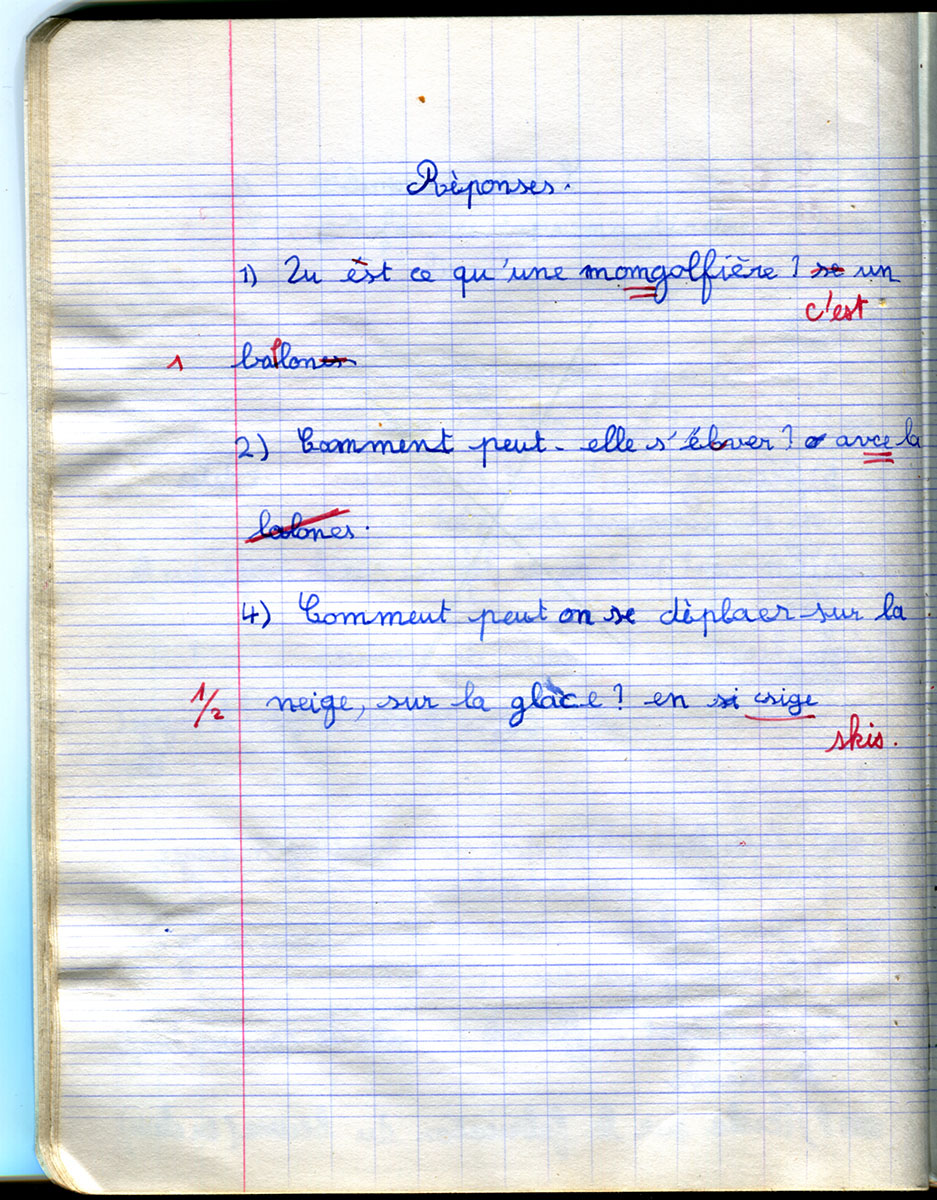 Rèponses.
1) Qu ést ce qu'une momgolfière ? se un
c'est
1 ballones
2) Comment peut-elle s'élover ? avce la
balones.
4) Comment peut on se dèplaer sur la
1/2 neige, sur la glace ? en si csige
skis.